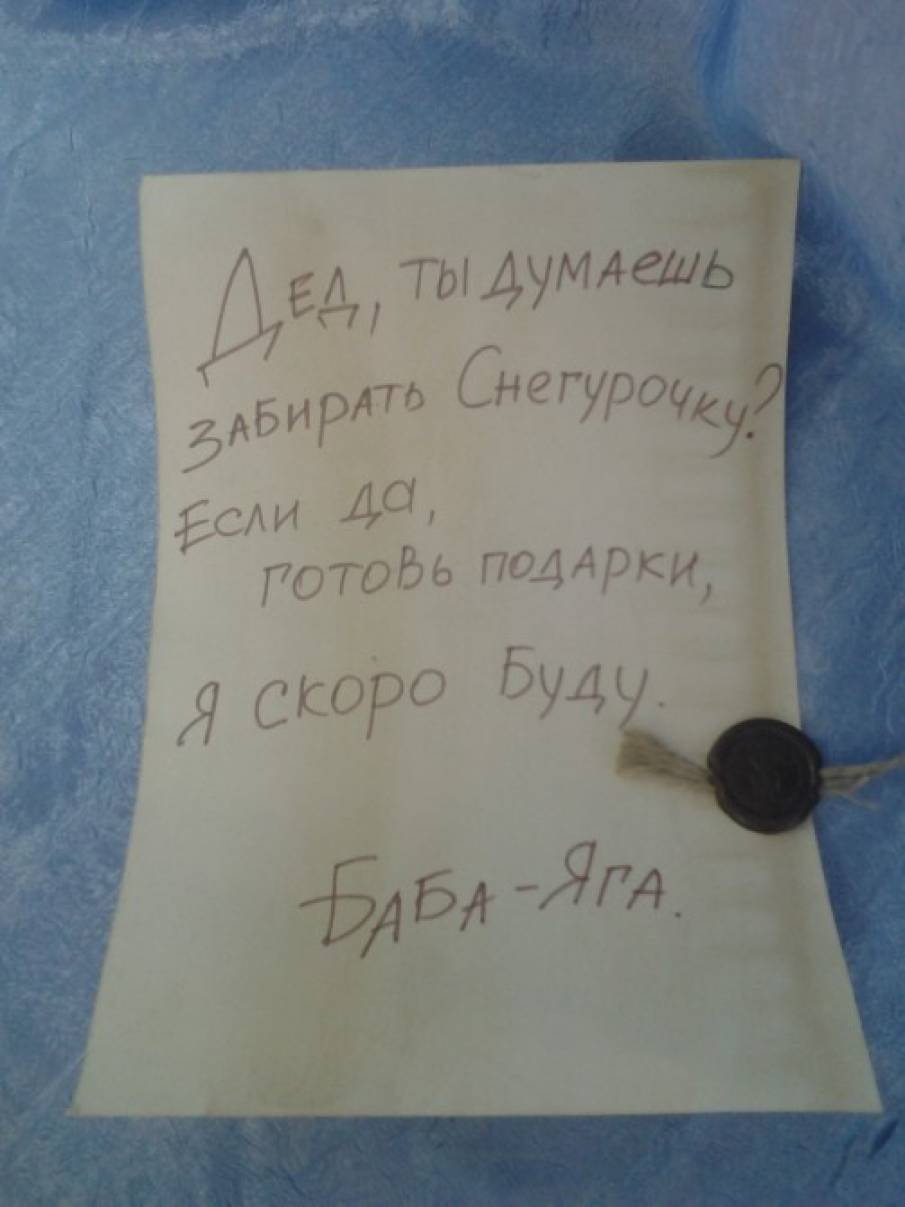 Дед, ты думаешь
забирать Снегурочку?
Если да,
готовь подарки,
я скоро буду.
Баба-Яга.